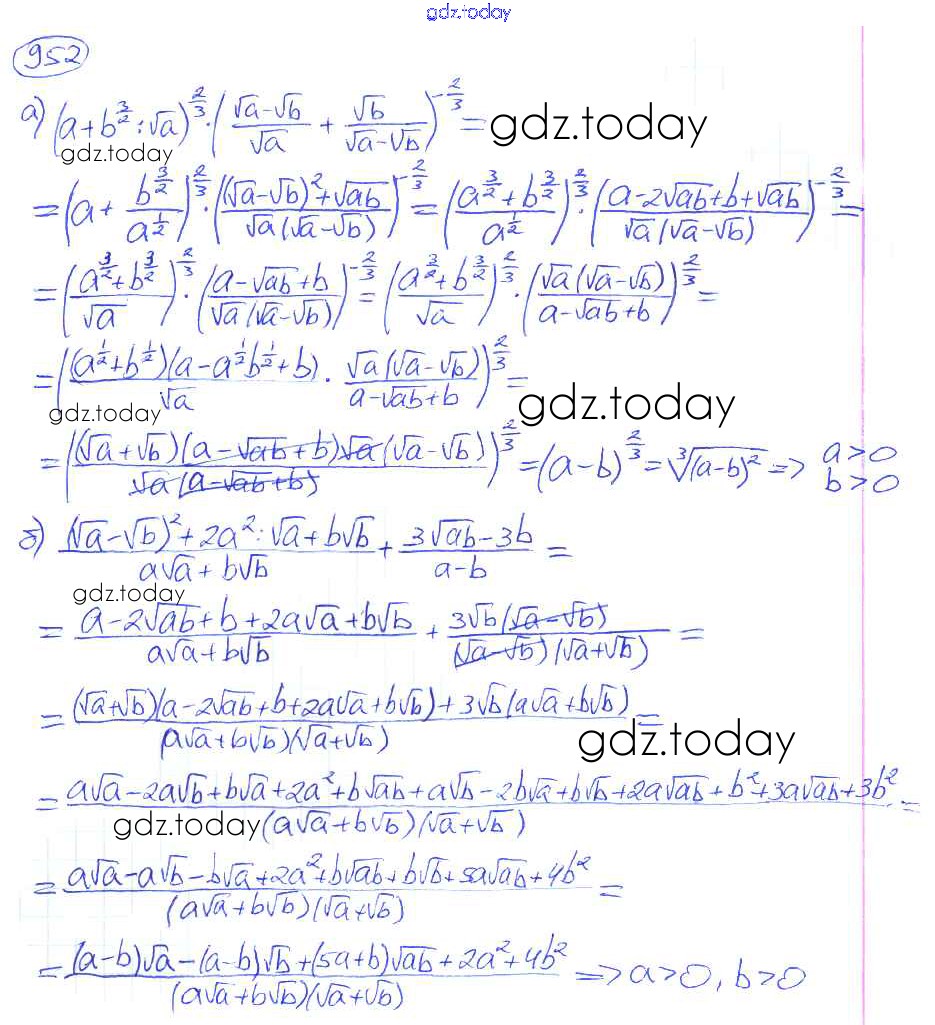 gdz.today
952
а) (a+b^{3/2}:√a)^{2/3}·((√a-√b)/√a + √b/(√a-√b))^{-2/3}= gdz.today
gdz.today
=(a+ b^{3/2}/a^{1/2})^{2/3}·(((√a-√b)²+√ab)/(√a(√a-√b)))^{-2/3}=((a^{3/2}+b^{3/2})/a^{1/2})^{2/3}·((a-2√ab+b+√ab)/(√a(√a-√b)))^{-2/3}=
=((a^{3/2}+b^{3/2})/√a)^{2/3}·((a-√ab+b)/(√a(√a-√b)))^{-2/3}=((a^{3/2}+b^{3/2})/√a)^{2/3}·(√a(√a-√b)/(a-√ab+b))^{2/3}=
=((a^{1/2}+b^{1/2})(a-a^{1/2}b^{1/2}+b)/√a · √a(√a-√b)/(a-√ab+b))^{2/3}=
gdz.today gdz.today
=((√a+√b)(a-√ab+b)√a(√a-√b)/(√a(a-√ab+b)))^{2/3}=(a-b)^{2/3}=∛(a-b)² => a>0 b>0
б) ((√a-√b)²+2a²:√a+b√b)/(a√a+b√b) + (3√ab-3b)/(a-b) =
gdz.today
= (a-2√ab+b+2a√a+b√b)/(a√a+b√b) + 3√b(√a-√b)/((√a-√b)(√a+√b)) =
= ((√a+√b)(a-2√ab+b+2a√a+b√b)+3√b(a√a+b√b))/((a√a+b√b)(√a+√b)) =
gdz.today
= (a√a-2a√b+b√a+2a²+b√ab+a√b-2b√a+b√b+2a√ab+b²+3a√ab+3b²)/((a√a+b√b)(√a+√b)) =
gdz.today
= (a√a-a√b-b√a+2a²+b√ab+b√b+5a√ab+4b²)/((a√a+b√b)(√a+√b)) =
= ((a-b)√a-(a-b)√b+(5a+b)√ab+2a²+4b²)/((a√a+b√b)(√a+√b)) => a>0, b>0